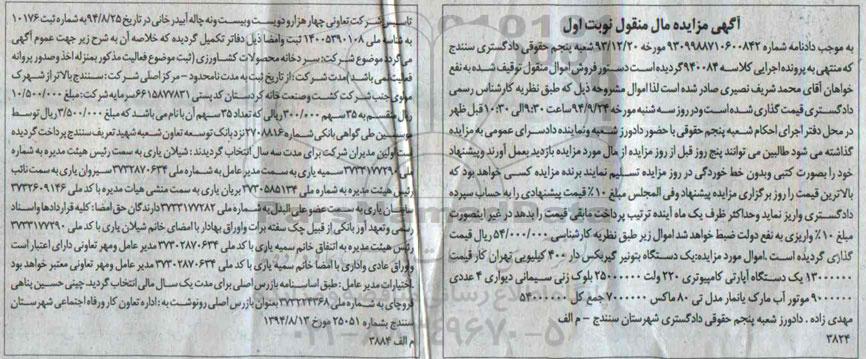 آگهی مزایده مال منقول نوبت اول
به موجب دادنامه شماره ۹۳۰۹۹۸۸۷۱۰۶۰۰۸۴۲ مورخه ۹۳/۱۲/۲۰ شعبه پنجم حقوقی دادگستری سنندج
که منتهی به پرونده اجرایی کلاسه ۹۴۰۰۸۴ گردیده است دستور فروش اموال منقول توقیف شده به نفع
خواهان آقای محمد شریف نصیری صادر شده است لذا اموال مشروحه ذیل که طبق نظریه کارشناس رسمی
دادگستری قیمت گذاری شده است ودر روز سه شنبه مورخه ۹۴/۹/۲۴ ساعت ۹:۳۰ الی ۱۰:۳۰ قبل ظهر
در محل دفتر اجرای احکام شعبه پنجم حقوقی با حضور دادورز شعبه ونماینده دادسرای عمومی به مزایده
گذاشته می شود طالبین می توانند پنج روز قبل از روز مزایده از مال مورد مزایده بازدید بعمل آورند وپیشنهاد
خود را بصورت کتبی وبدون خط خوردگی در روز مزایده تسلیم نمایند برنده مزایده کسی خواهد بود که
بالاترین قیمت را روز برگزاری مزایده پیشنهاد وفی المجلس مبلغ ۱۰٪ قیمت پیشنهادی را به حساب سپرده
دادگستری واریز نماید وحداکثر ظرف یک ماه آینده ترتیب پرداخت مابقی قیمت را بدهد در غیر اینصورت
مبلغ ۱۰٪ واریزی به نفع دولت ضبط خواهد شد اموال زیر طبق نظریه کارشناسی ۵۴/۰۰۰/۰۰۰ ریال قیمت
گذاری گردیده است .اموال مورد مزایده:یک دستگاه بتونیر گیربکس دار ۴۰۰ کیلویی تهران کار قیمت
۱۳۰۰۰۰۰۰ یک دستگاه آپارتی کامپیوتری ۲۲۰ ولت ۲۵۰۰۰۰۰۰ بلوک زنی سیمانی دیواری ۴ عددی
۹۰۰۰۰۰۰ موتور آب مارک یانمار مدل تی ۸۰ ماکس ۷۰۰۰۰۰۰ جمع کل ۵۴۰۰۰۰۰۰
مهدی زاده . دادورز شعبه پنجم حقوقی دادگستری شهرستان سنندج - م الف
۳۸۲۴
تاسیس شرکت تعاونی چهار هزارو دویست وبیست ونه چاله آبیدر خانی در تاریخ ۹۴/۸/۲۵ به شماره ثبت ۱۰۱۷۶
به شناسه ملی ۱۴۰۰۵۳۹۰۱۰۸ ثبت وامضا ذیل دفاتر تکمیل گردیده که خلاصه آن به شرح زیر جهت عموم آگهی
می گردد موضوع شرکت: سرد خانه محصولات کشاورزی (ثبت موضوع فعالیت مذکور بمنزله اخذ وصدور پروانه
فعالیت نمی باشد) مدت شرکت : از تاریخ ثبت به مدت نامحدود - مرکز اصلی شرکت : سنندج بالاتر از شهرک
مولوی جنب شرکت کشت وصنعت خانه کردستان کد پستی ۶۶۱۵۸۷۷۸۳۱ سرمایه شرکت : مبلغ ۱۰/۵۰۰/۰۰۰
ریال منقسم به ۳۵ سهم ۳۰۰/۰۰۰ ریالی که تعداد ۳۵ سهم آن با نام می باشد که مبلغ ۳/۵۰۰/۰۰۰ ریال توسط
موسسین طی گواهی بانکی شماره ۲۷۰۸۸۱۶ نزد بانک توسعه تعاون شعبه شهید تعریف سنندج پرداخت گردیده
است اولین مدیران شرکت برای مدت سه سال انتخاب گردیدند : شیلان یاری به سمت رئیس هیئت مدیره به شماره
ملی ۳۷۳۳۱۷۷۲۹۰ سمیه یاری به سمت مدیر عامل به شماره ملی ۳۷۳۰۲۸۷۰۶۳۴ سیروان یاری به سمت نائب
رئیس هیئت مدیره به شماره ملی ۳۷۳۰۵۸۵۱۳۴ بریان یاری به سمت منشی هیات مدیره با کد ملی ۳۷۳۲۶۰۹۱۴۶
سامان یاری به سمت عضو علی البدل به شماره ملی ۳۷۳۳۱۷۷۲۸۲ دارندگان حق امضا : کلیه قرار دادها واسناد
رسمی وتعهد آور بانکی از قبیل چک سفته برات واوراق بهادار با امضای خانم شیلان یاری با کد ملی ۳۷۳۳۱۷۷۲۹۰
رئیس هیئت مدیره به اتفاق خانم سمیه یاری با کد ملی ۳۷۳۰۲۸۷۰۶۳۴ مدیر عامل ومهر تعاونی دارای اعتبار است
واوراق عادی واداری با امضا خانم سمیه یاری با کد ملی ۳۷۳۰۲۸۷۰۶۳۴ مدیر عامل ومهر تعاونی معتبر خواهد بود
.اختیارات مدیر عامل : طبق اساسنامه بازرس اصلی برای مدت یک سال مالی انتخاب گردید.چینی حسین پناهی
قروچای به شماره ملی ۳۷۳۲۲۴۳۶۸ بعنوان بازرس اصلی رونوشت به : اداره تعاون کار ورفاه اجتماعی شهرستان
سنندج بشماره ۲۵۰۵۱ مورخ ۱۳۹۴/۸/۱۳
م الف ۳۸۸۴